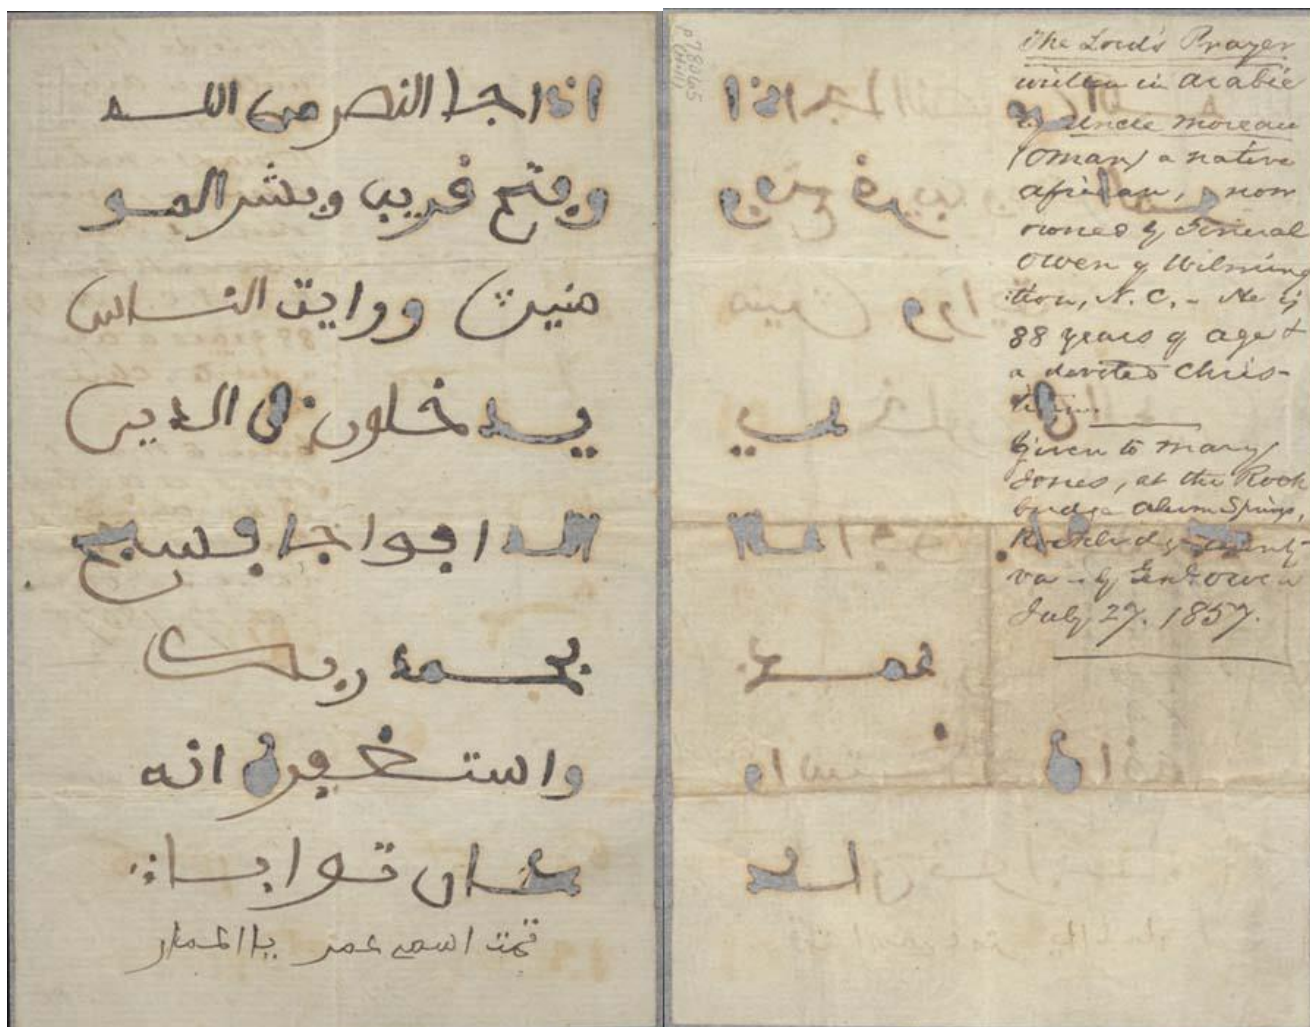 اذا جا النصر من الله
وفتح فريب وبشر المو
منين ورايت النساس
يدخلون في الدين
الله افواجا فسبح
بحمد ربك
واستغفره انه
كان توابا
تمت اسمي عمر
The Lord's Prayer
written in Arabic
by Uncle Moreau
(Omar) a native
african, now
owned by General
Owen of Wilming
ton, N. C. - He is
88 years of age &
a devoted Chris-
tian.
Given to Mary
Jones, at the Rock
bridge Alum Springs,
Rockbridge County
Va - by Gen Owen
July 27. 1857.